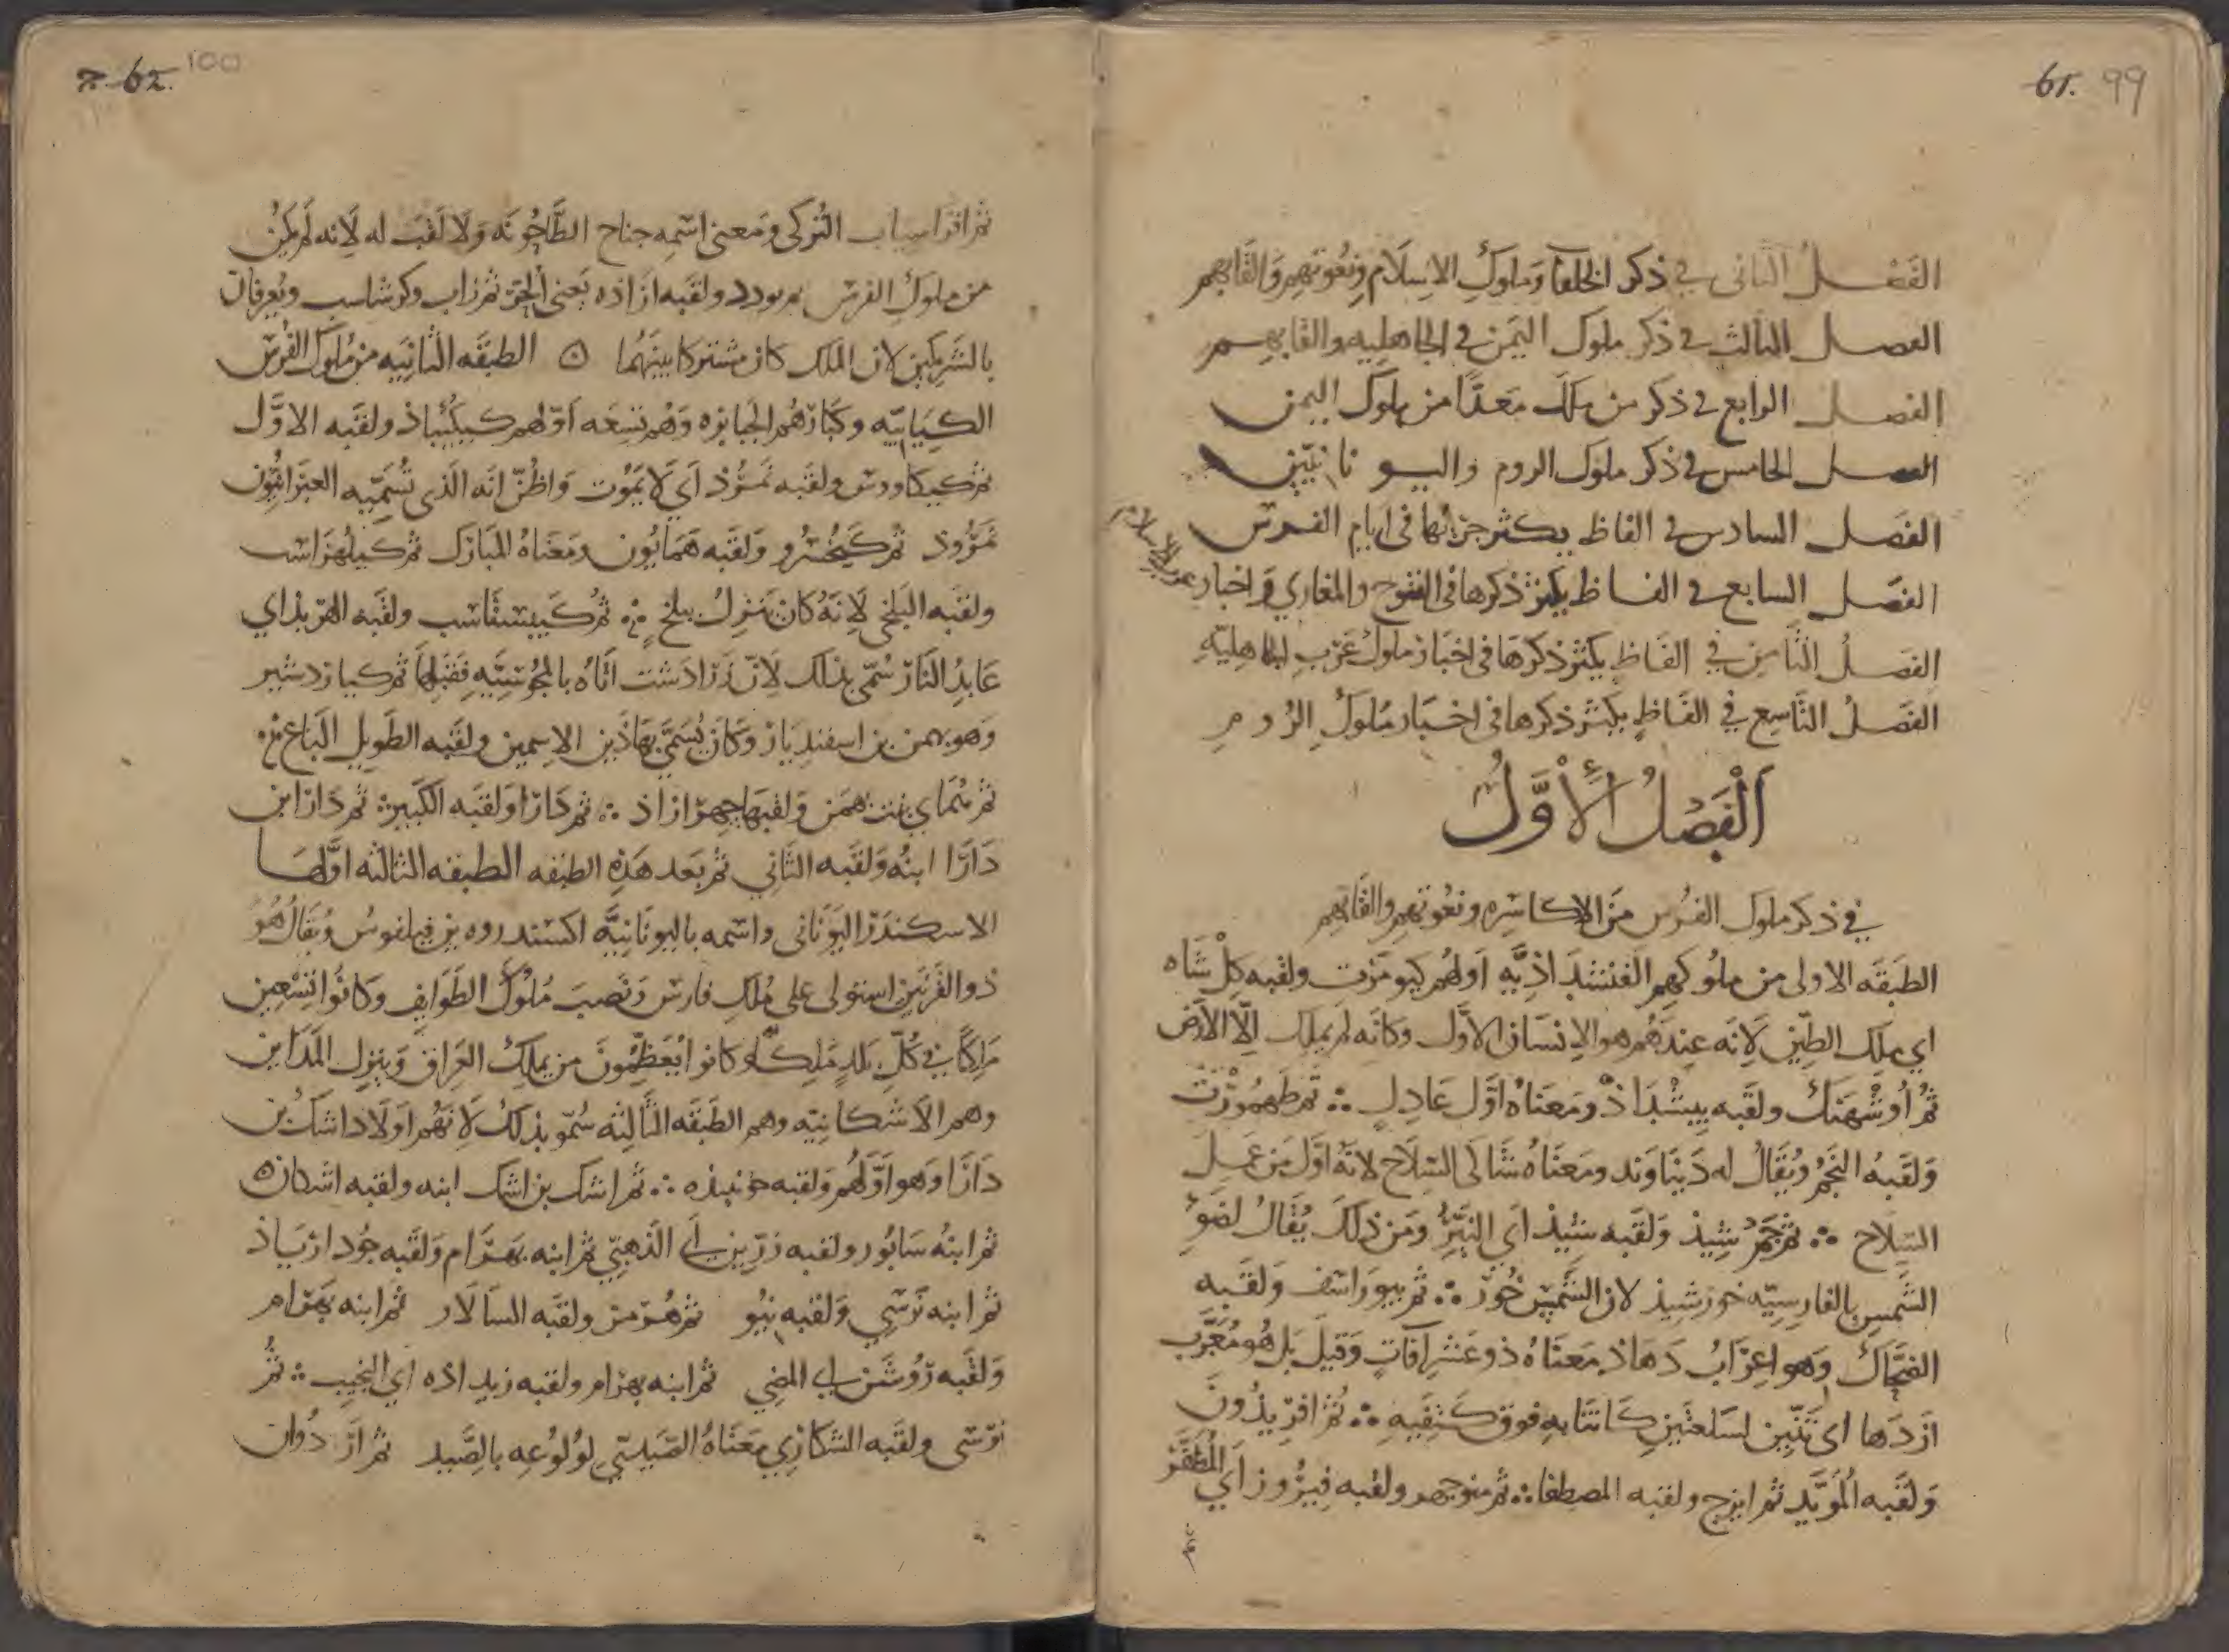 61. 99
الفصل الثاني في ذكر الخلفا وملوك الاسلام ونعوتهم والقابهم
الفصل الثالث في ذكر ملوك اليمن في الجاهليه والقابهم
الفصل الرابع في ذكر من ملك معدا من ملوك اليمن
الفصل الخامس في ذكر ملوك الروم واليونانيين
الفصل السادس في الفاظ يكثر جريها في ايام الفرس
الفصل السابع في الفاظ يكثر ذكرها في الفتوح والمغازي واخبار عرب الاسلام
الفصل الثامن في الفاظ يكثر ذكرها في اخبار ملوك عرب الجاهليّه
الفصل التاسع في الفاظ يكثر ذكرها في اخبار ملوك الروم
اَلْفَصْلُ الْأَوَّلُ
في ذكر ملوك الفرس من الاكاسره ونعوتهم والقابهم
الطبقه الاولى من ملوكهم الفيشداذيّه اولهم كيومرت ولقبه كل شاه
اي ملك الطين لانه عندهم هو الانسان الاول وكانه لم يملك الّا الارض
ثم اوشهنك ولقبه بيشداذ ومعناه اول عادل ∴ ثم طهمورت
ولقبه النجم ويقال له دنياوند ومعناه شاكى السلاح لانه اول من عمل
السلاح ∴ ثم جم شيذ ولقبه شيذ اي النيّر ومن ذلك يقال لضوء
الشمس بالفارسيّه خورشيذ لان الشمس خور ∴ ثم بيوراسف ولقبه
الضحاك وهو اعراب دهاذ معناه ذو عشر آفات وقيل بل هو معرّب
ازدها اى تنّين لسلعتين كانتا به فوق كتفيه ∴ ثم افريذون
ولقبه المويّد ثم ايرج ولقبه المصطفا ∴ ثم منوجهر ولقبه فيروز اي المظفر
62. 100
ثم افراسياب التركى ومعنى اسمه جناح الطاحونه ولا لقب له لانه لم يكن
من ملوك الفرس ولقبه ازاذه يعنى الحر ثم زاب وكرشاسب ويعرفان
بالشريكين لان الملك كان مشتركا بينهما ه الطبقه الثانيه من ملوك الفرس
الكيانيّه وكبارهم الجبابره وهم تسعه اولهم كيكيباذ ولقبه الاوّل
ثم كيكاووس ولقبه نمرّد اي لا يموت واظنّ انه الذى تسميه العبرانيون
نمرود ثم كيخسرو ولقبه همايون ومعناه المبارك ثم كيلهراسب
ولقبه البلخى لانه كان ينزل ببلخ ∴ ثم كيبيشتاسب ولقبه الهربذ اي
عابد النار سمّي بذلك لانّ زرادشت اتاه بالمجوسيّه فقبلها ثم كياردشير
وهو بهمن بن اسفندياز وكان يسمى بهاذين الاسمين ولقبه الطويل الباع ∴
ثم خماي بنت بهمن ولقبها جهرازاذ ∴ ثم دارا ولقبه الكبير ∴ ثم دارا ابن
دارا ابنه ولقبه الثاني ثم بعد هذه الطبقه الطبقه الثالثه اولها
الاسكندر اليوناني واسمه باليونانيّه اكسندروه بن فيلفوس ويقال هو
ذو القرنين استولى على ملك فارس ونصب ملوك الطوايف وكانوا تسعين
ملكا في كل بلد ملك وكانوا يعظمون من يملك العراق وينزل المداين
وهم الاشكانيّه وهم الطبقه الثالثه سمّو بذلك لانهم اولاد اشك بن
دارا وهو اولهم ولقبه ∴ ثم اشك بن اشك ابنه ولقبه اشكان ه
ثم ابنه سابور ولقبه زرّين اي الذهبيّ ثم ابنه بهرام ولقبه جوذارز
ثم ابنه نرسي ولقبه نيو ثم هرمز ولقبه السالار ثم ابنه بهرام
ولقبه روشن اي المضي ثم ابنه بهرام ولقبه اي النجيب ∴ ثم
نرسى ولقبه الشكاري معناه الصيدىّ لولوعه بالصيد ثم اردوان